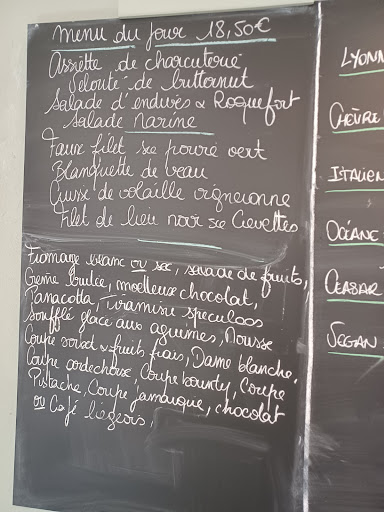 Menu du Jour 18,50€
Assiette de charcuterie
Velouté de butternut
Salade d'endives & Roquefort
Salade Marine
Faux filet sce poivre vert
Blanquette de veau
Cuisse de volaille vigneronne
Filet de lieu noir sce Crevettes
Fromage blanc ou sec, salade de fruits,
Crème brulée, moelleux chocolat,
Panacotta, tiramisu speculoos
Soufflé glacé aux agrumes, Mousse
Coupe sorbet & fruits frais, Dame blanche,
Coupe ardechoise, Coupe bounty, Coupe
Pistache, Coupe jamaique, chocolat
ou Café liégeois,
LYONN
CHÈVRE
ITALIEN
OCÉANE
CEASAR
VEGAN